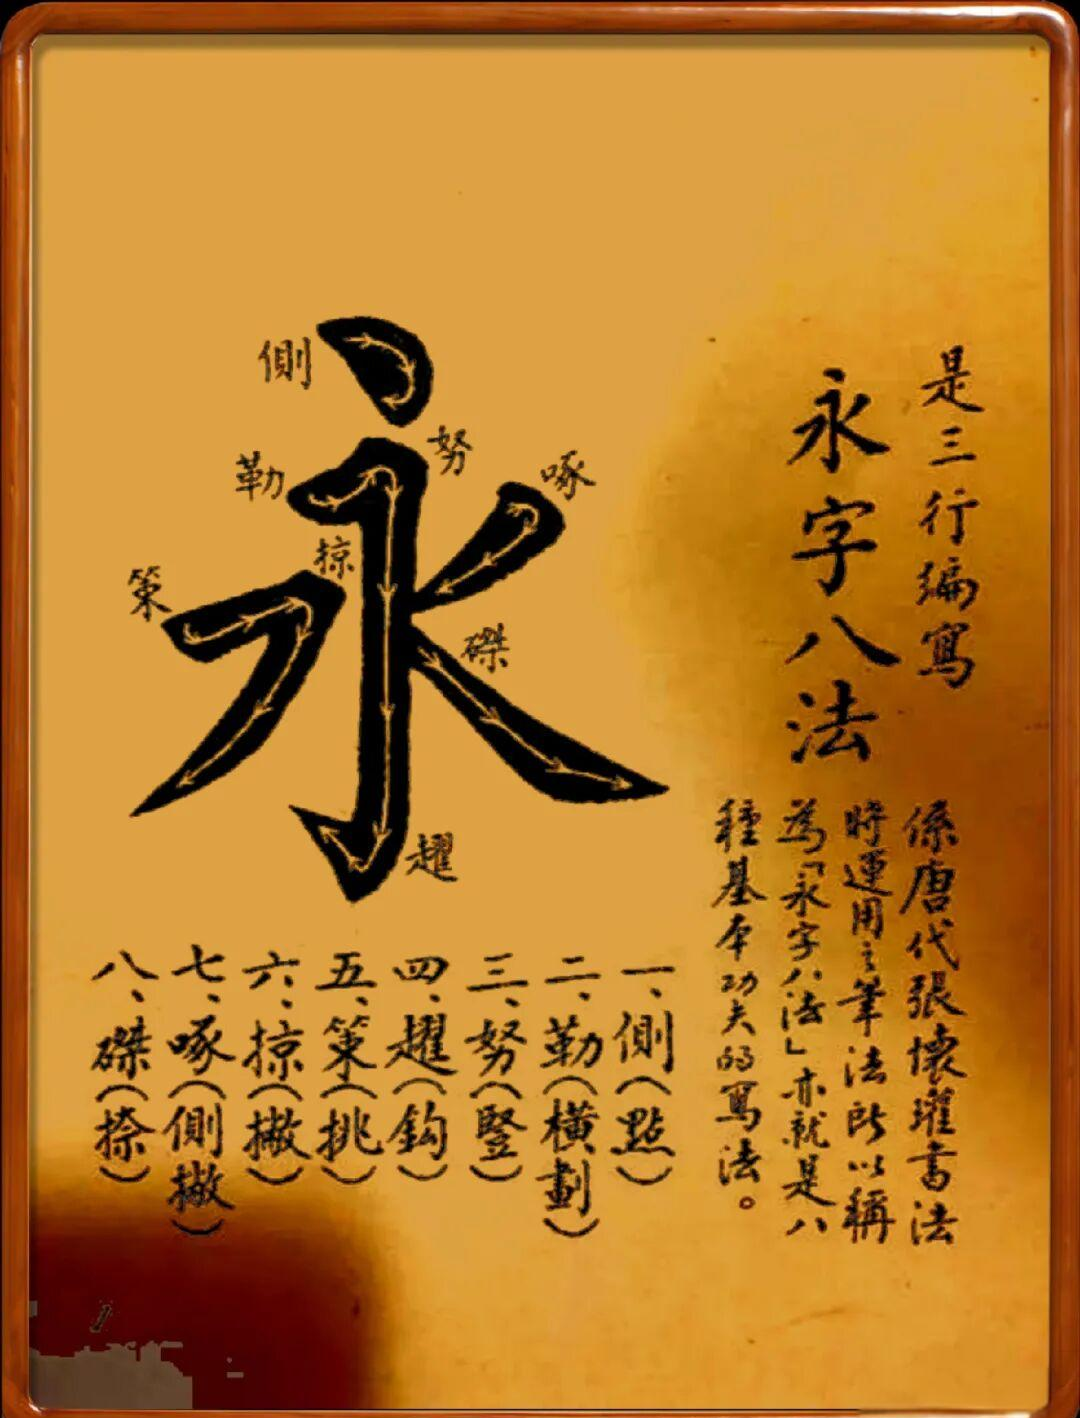 是三行編寫
永字八法
係唐代張懷瓘書法
時運用之筆法所以稱
為「永字八法」亦就是八
種基本功夫的寫法。
側
努
勒
啄
掠
策
磔
趯
一、側（點）
二、勒（橫劃）
三、努（豎）
四、趯（鈎）
五、策（挑）
六、掠（撇）
七、啄（側撇）
八、磔（捺）
永